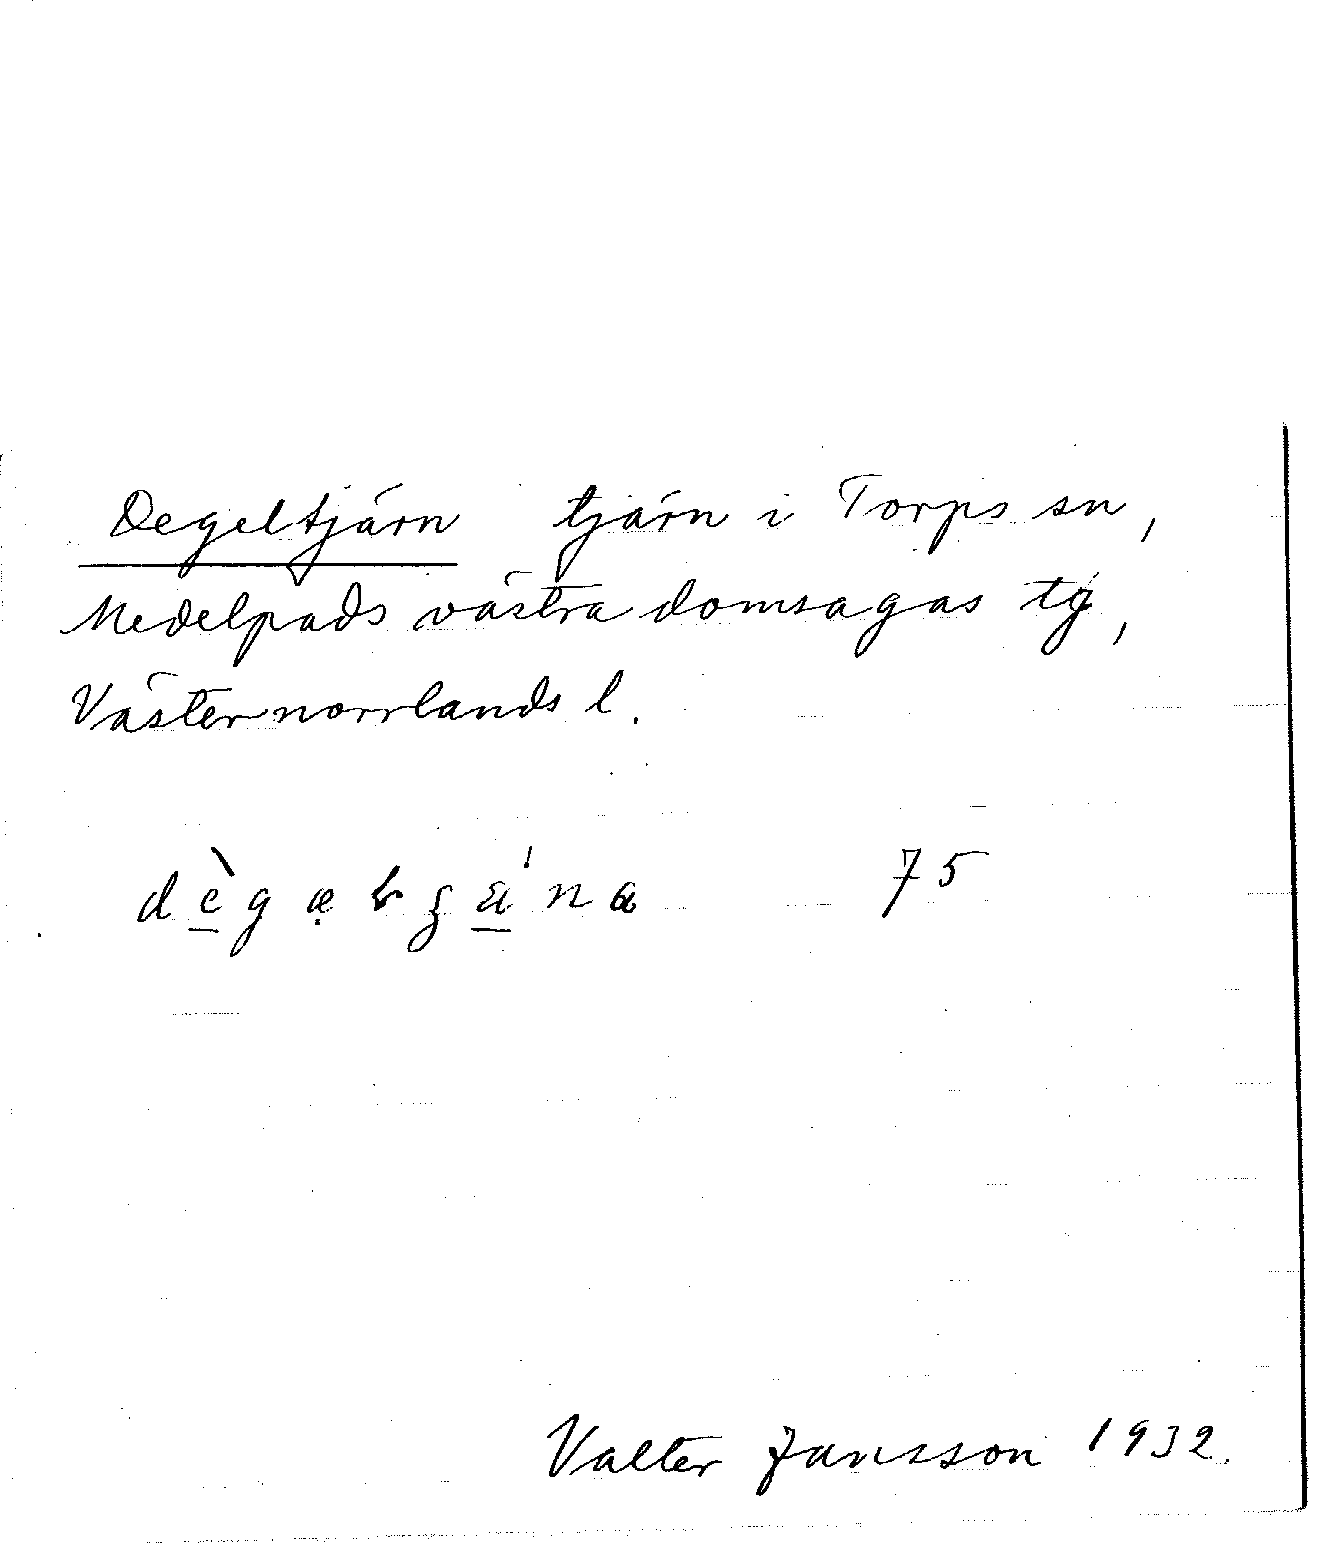 Degeltjärn tjärn i Torps sn,
Medelpads västra domsagas tg,
Västernorrlands l.
75
Valter Jansson 1932.